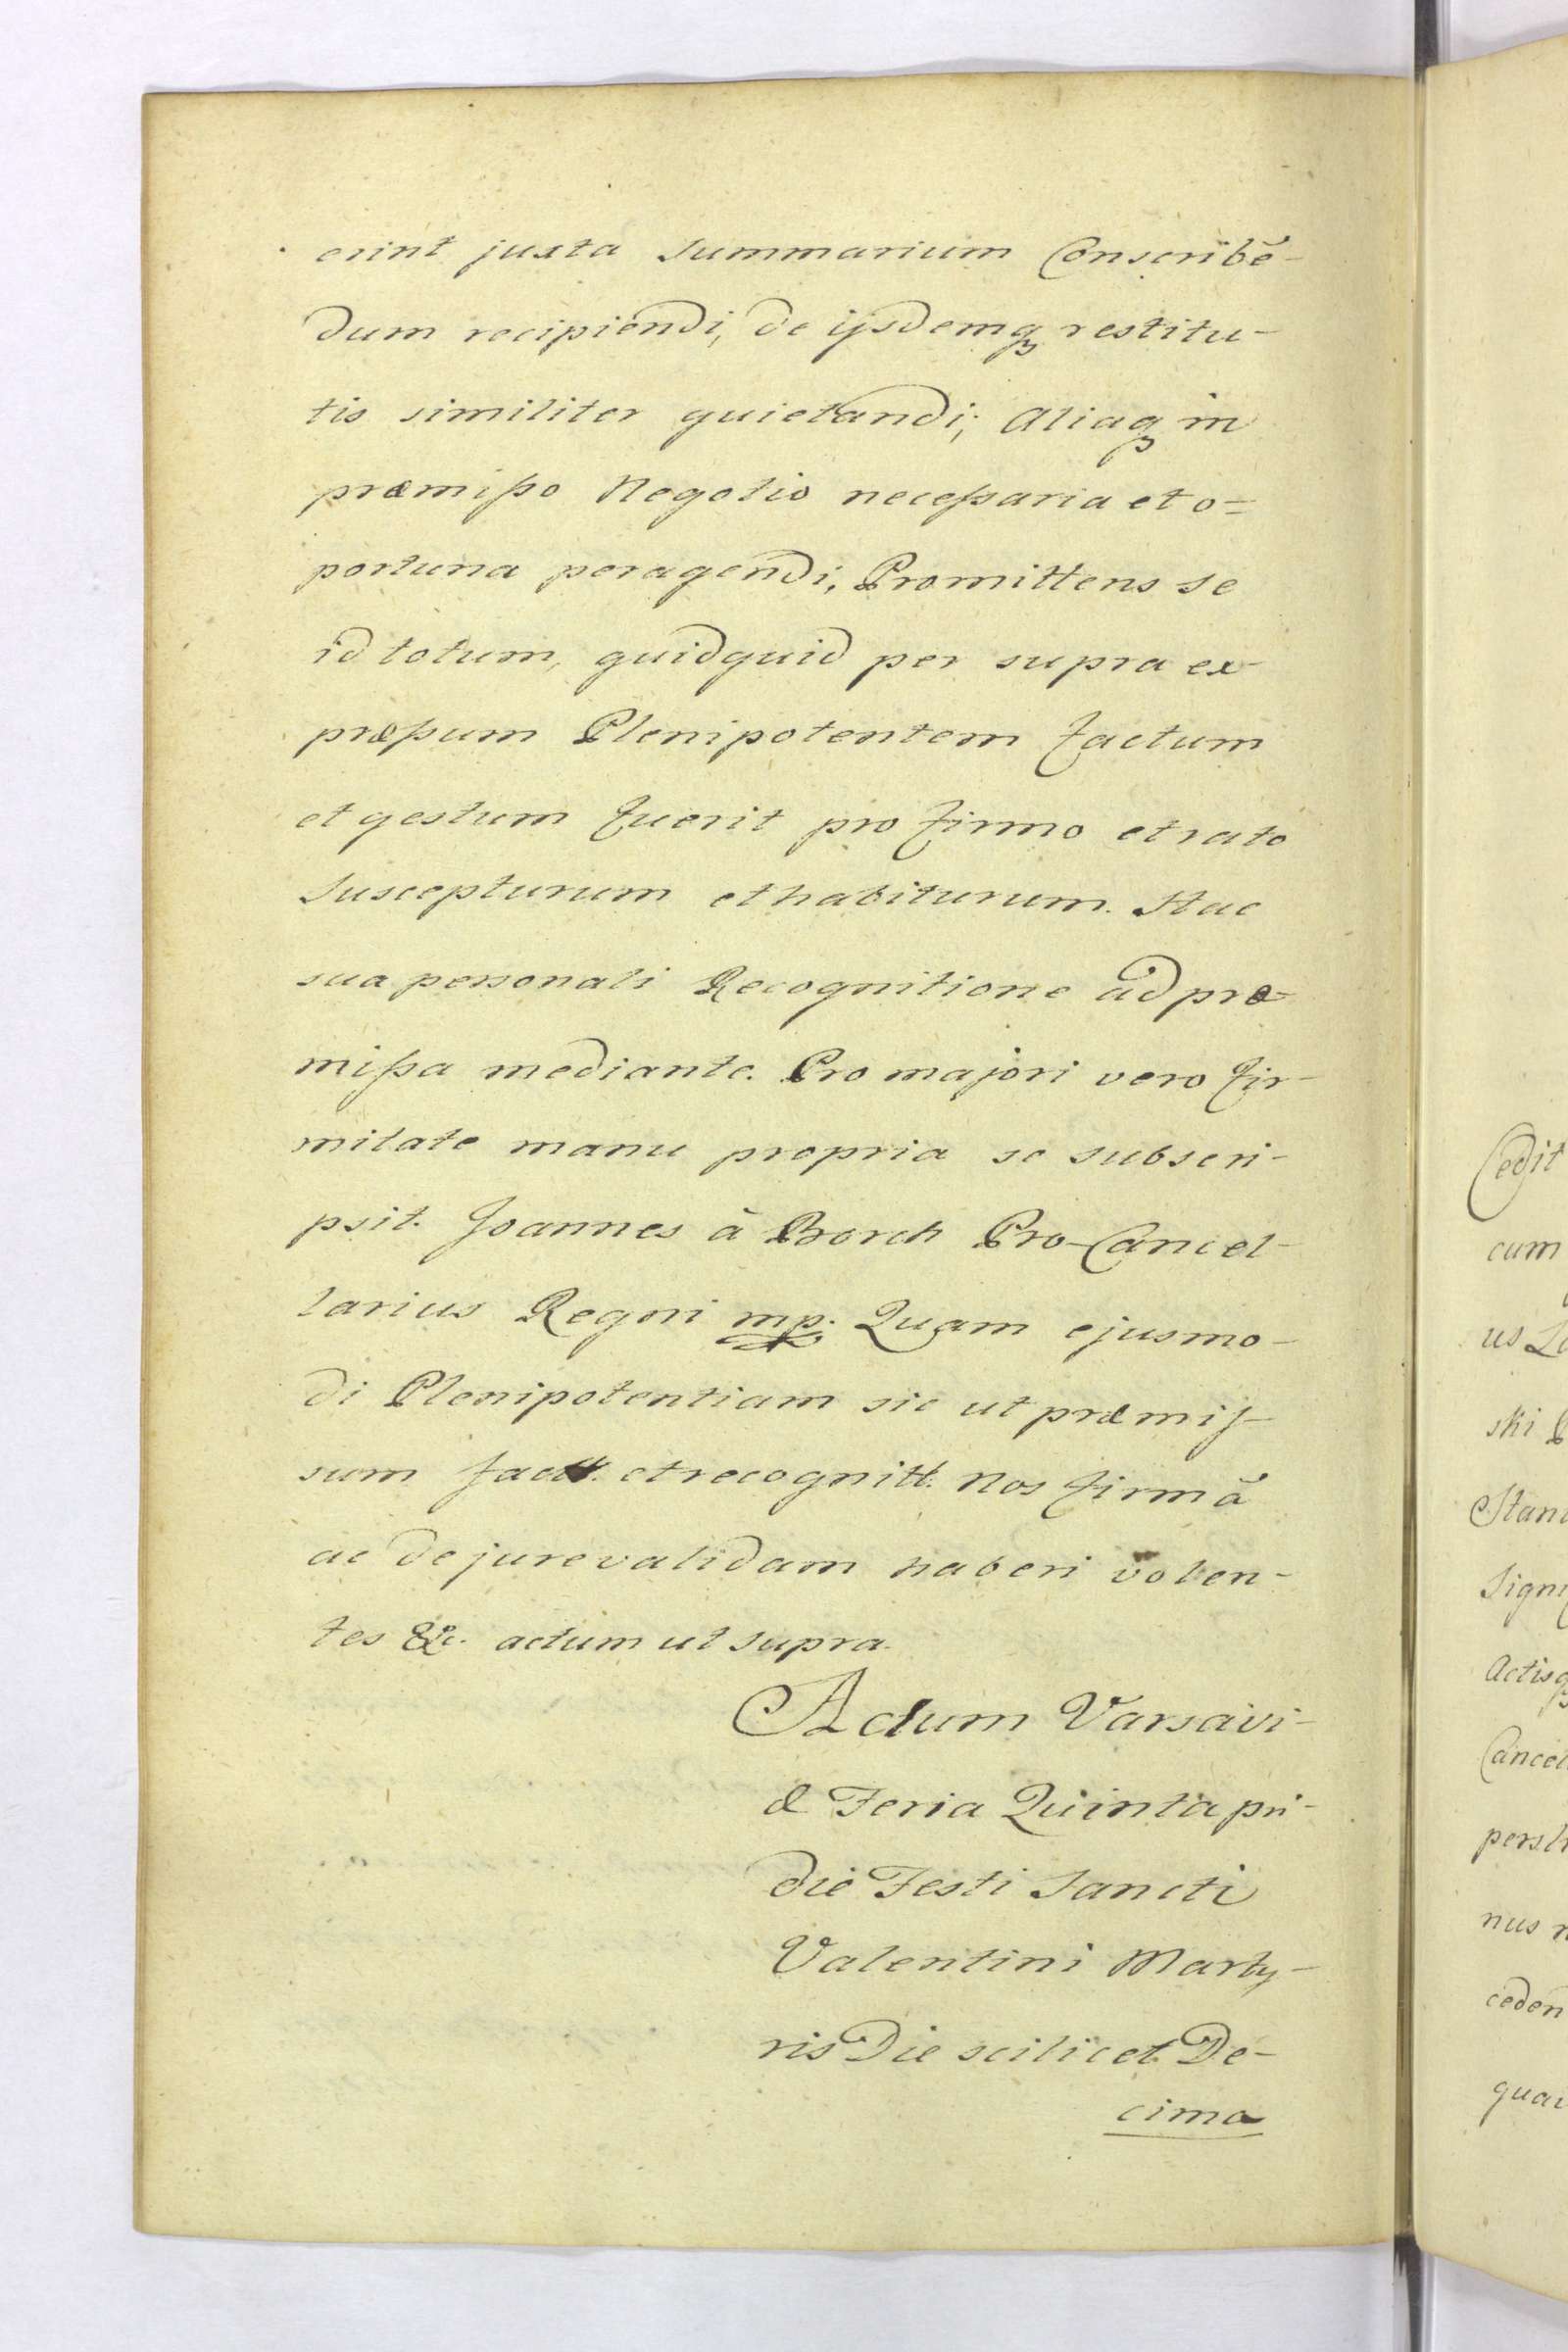 erint juxta Summarium Conscribē-
dum recipiendi, de ijsdemq₃ restitu-
tis similiter quietandi; Aliaq₃ in
præmiſso Negotio neceſsaria et o=
portuna peragendi, Promittens se
id totum, quidquid per supra ex-
præſsum Plenipotentem factum
et gestum fuerit pro firmo et rato
suscepturum et habiturum. Hac
sua personali Recognitione ad præ-
miſsa mediante. Pro majori vero fir-
mitate manu propria se subscri-
psit. Joannes à Borch Pro-Cancel-
larius Regni mp. Quam ejusmo-
di Plenipotentiam sic ut præmiſ-
sum factt. et recognitt. Nos firmā
ac de jure validam haberi volen-
tes &c. actum ut supra.
Actum Varsavi-
æ Feria Quinta pri-
die Festi Sancti
Valentini Marty-
ris Die scilicet De-
cima
Cedit
cum
us
ski
Stani
Signi
Actisq₃
Cancel
pers
nus
ceden